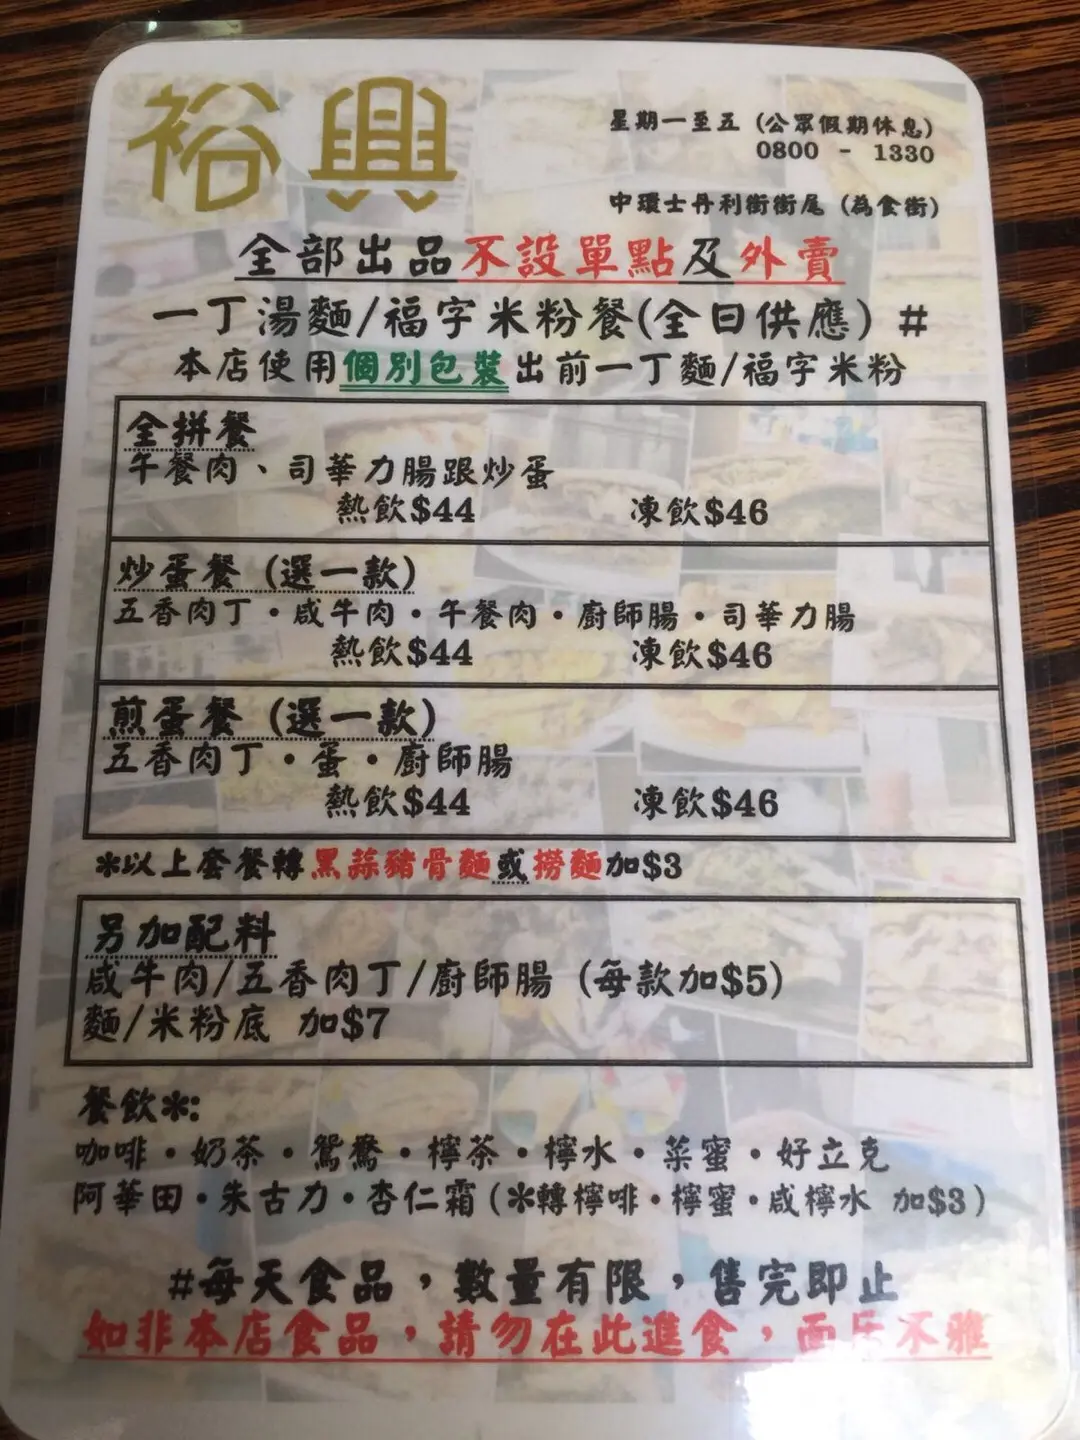 裕興
星期一至五 (公眾假期休息)
0800 - 1330
中環士丹利街街尾 (為食街)
全部出品不設單點及外賣
一丁湯麵/福字米粉餐(全日供應) #
本店使用個別包裝出前一丁麵/福字米粉
全拼餐
午餐肉、司華力腸跟炒蛋
熱飲$44 凍飲$46
炒蛋餐 (選一款)
五香肉丁・咸牛肉・午餐肉・廚師腸・司華力腸
熱飲$44 凍飲$46
煎蛋餐 (選一款)
五香肉丁・蛋・廚師腸
熱飲$44 凍飲$46
*以上套餐轉黑蒜豬骨麵或撈麵加$3
另加配料
咸牛肉/五香肉丁/廚師腸 (每款加$5)
麵/米粉底 加$7
餐飲*:
咖啡・奶茶・鴛鴦・檸茶・檸水・菜蜜・好立克
阿華田・朱古力・杏仁霜 (*轉檸啡・檸蜜・咸檸水 加$3)
#每天食品，數量有限，售完即止
如非本店食品，請勿在此進食，面斥不雅